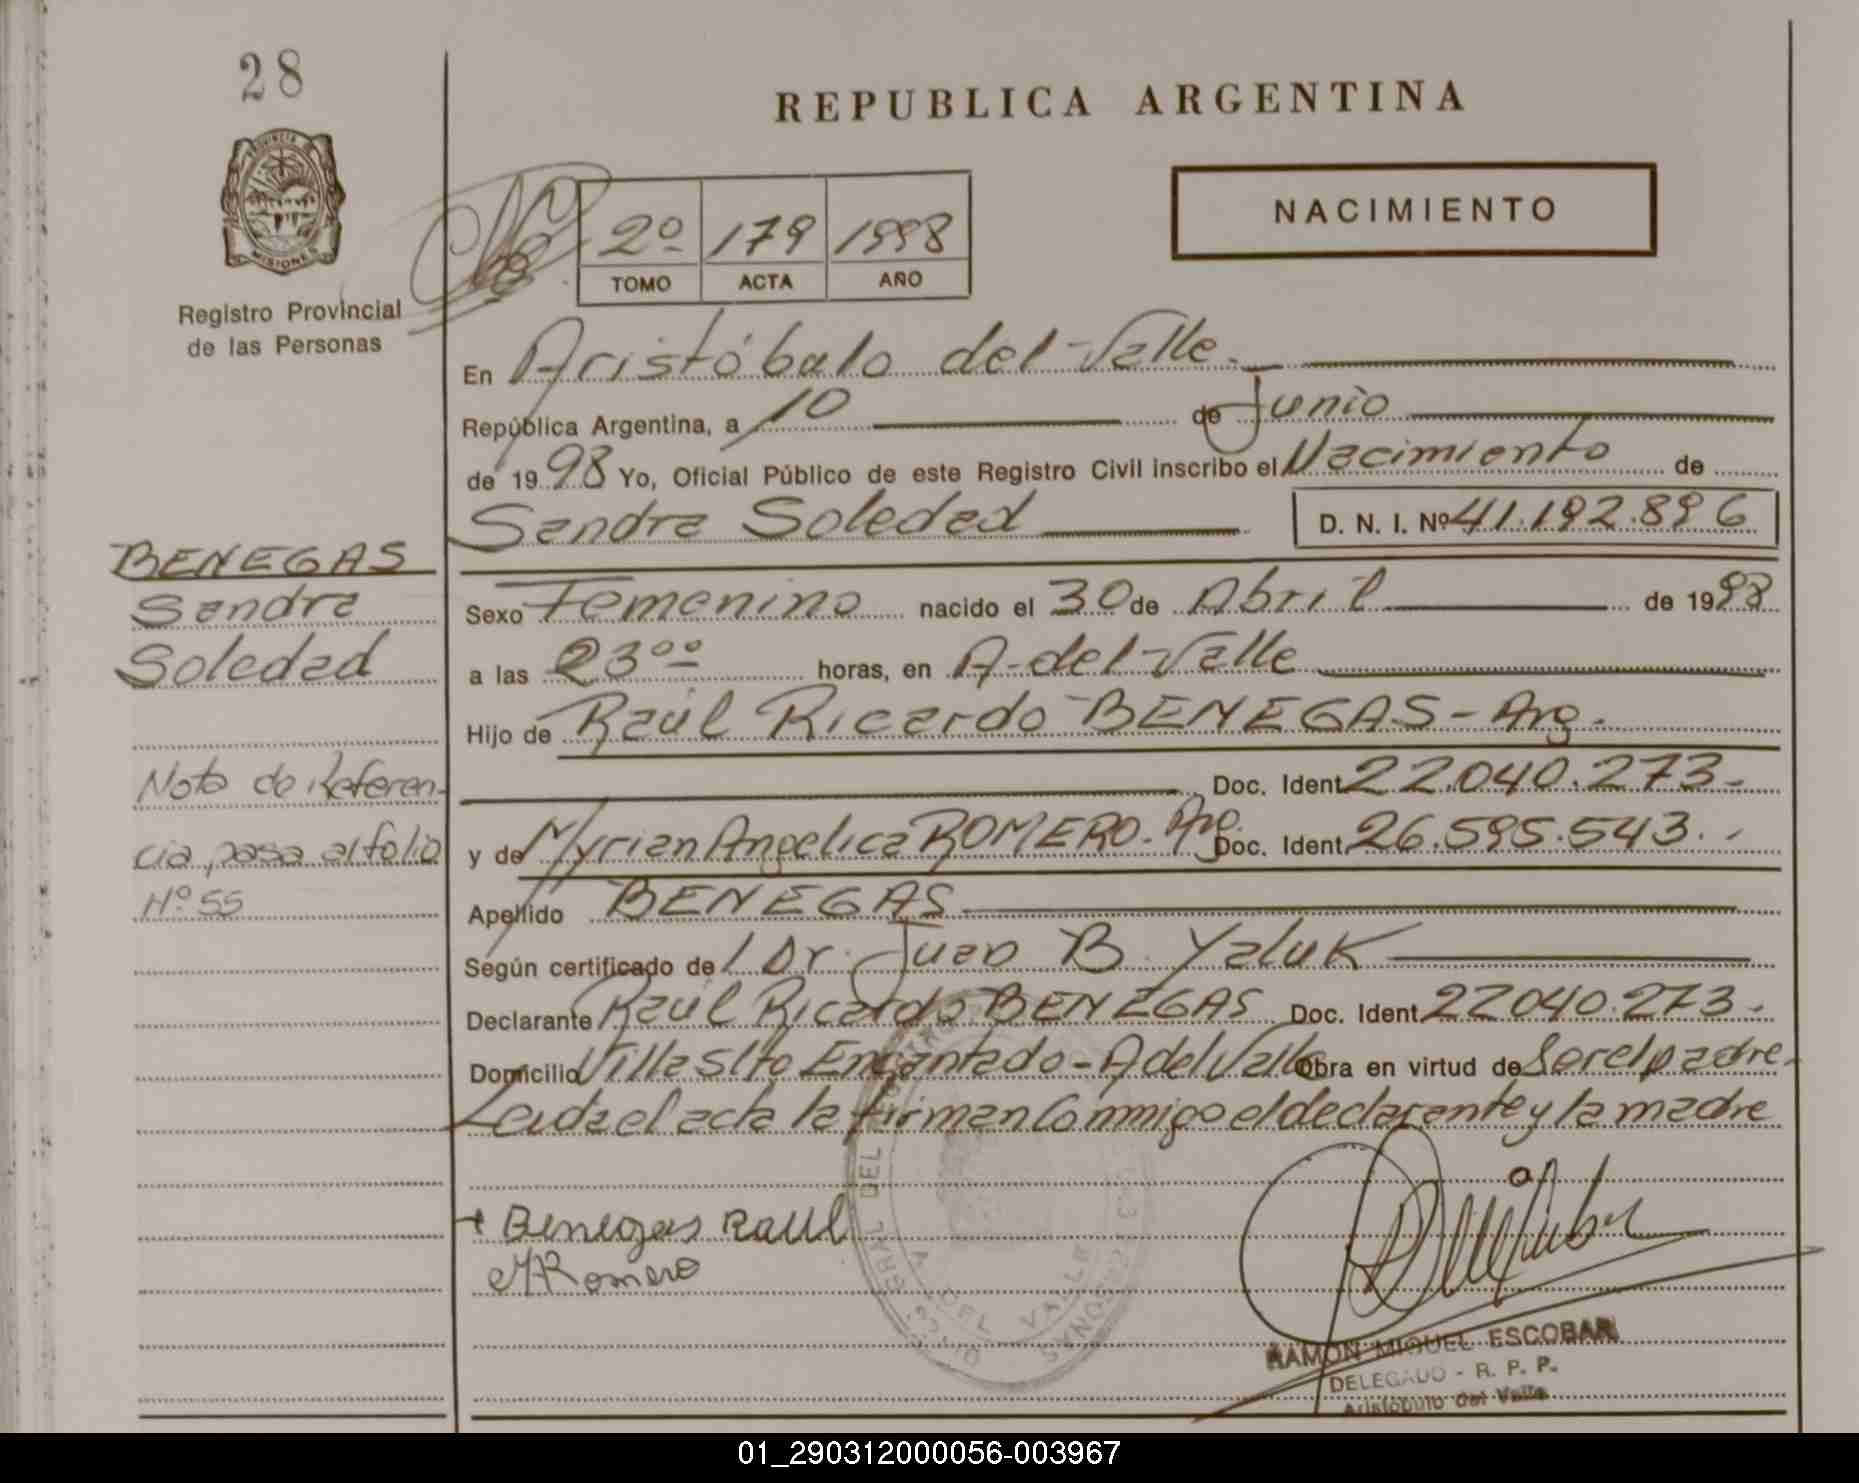 28
REPUBLICA ARGENTINA
PROVINCIA
MISIONES
Registro Provincial
de las Personas
2º 179 1998
TOMO ACTA AÑO
NACIMIENTO
En Aristóbulo del Valle.
República Argentina, a 10 de Junio
de 1998 Yo, Oficial Público de este Registro Civil inscribo el Nacimiento de
Sandra Soledad D. N. I. Nº 41.192.896
BENEGAS
Sandra
Soledad
Sexo Femenino nacido el 30 de Abril de 1998
a las 23ºº horas, en A. del Valle
Hijo de Raúl Ricardo BENEGAS - Arg.
Doc. Ident. 22.040.273.-
y de Myrian Angelica ROMERO. Arg. Doc. Ident. 26.595.543.
Nota de Referen-
cia, pasa al folio
Nº 55
Apellido BENEGAS
Según certificado de l Dr. Juan B. Yaluk
Declarante Raúl Ricardo BENEGAS Doc. Ident. 22040.273.-
Domicilio Villa Slto Encantado - A del Valle Obra en virtud de Ser el padre.
Leida el acta la firman Conmigo el declarante y la madre
+ Benegas Raul
M Romero
A. DEL VALLE
RAMON MIGUEL ESCOBAR
DELEGADO - R. P. P.
Aristóbulo del Valle
01_290312000056-003967